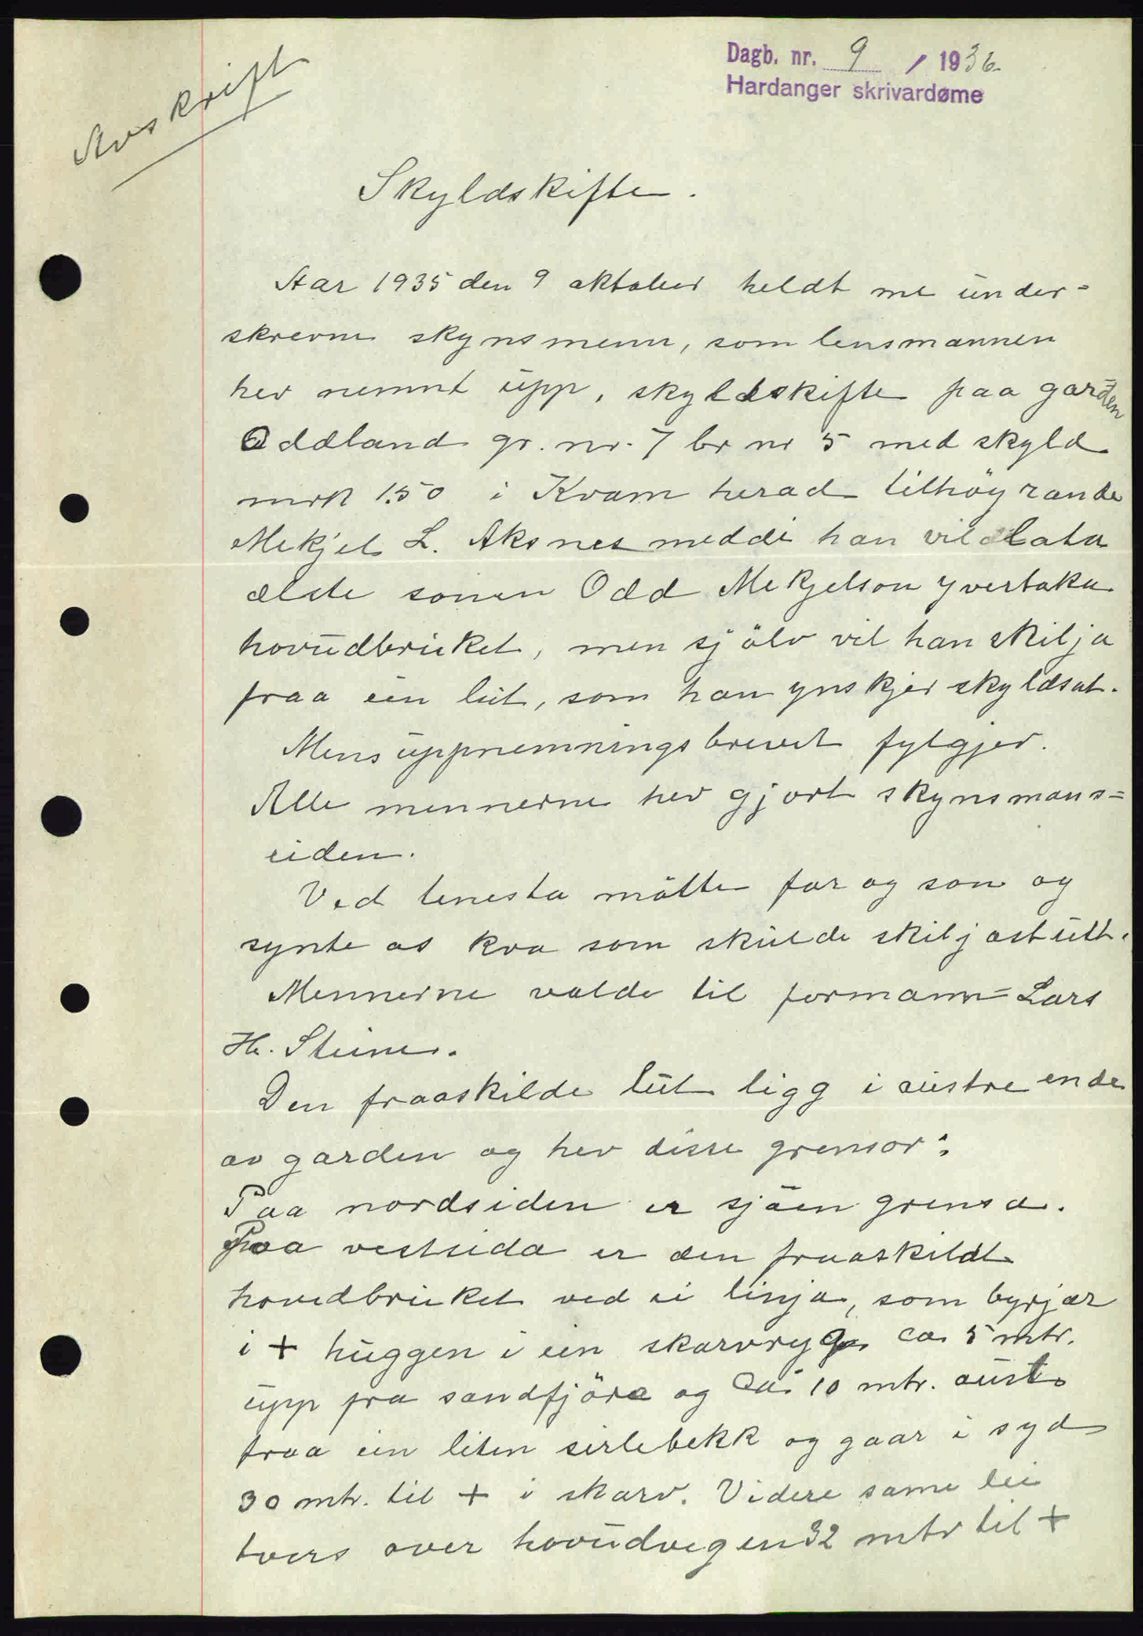 Avskrift
Dagb. nr. 9 / 1936
Hardanger skrivardøme
Skyldskifte.
Aar 1935 den 9 oktober heldt me under=
skrevne skynsmenn, som lensmannen
hev nemnt upp, skyldskifte paa garden
Oddland gr. nr. 7 br nr 5 med skyld
mrk 1.50 i Kvam herad tilhøyrande
Mekjel L. Aksnes meddi han vil lata
elste sonen Odd Mekjelson yvertaka
hovudbruket, men sjölv vil han skilja
fraa ein lut, som han ynskjer skyldsat.
Mens uppnemningsbrevet fylgjer.
Alle mennerne hev gjort skynsmans=
eiden.
Ved tenesta mötte far og son og
synte os kva som skulde skiljast utt.
Mennerne valde til formann Lars
H. Steine.
Den fraaskilde lut ligg i austre ende
av garden og hev disse grensor:
Paa nordsiden er sjöen grensa.
Paa vestsida er den fraaskildt
hovedbruket ved ei linja, som byrjar
i + huggen i ein skarvrygg ca 5 mtr.
upp fra sandfjöre og ca 10 mtr. aust
fraa ein liten sirlebekk og gaar i syd
30 mtr. til + i skarv. Videre same lei
tvers over hovudvegen 32 mtr til +